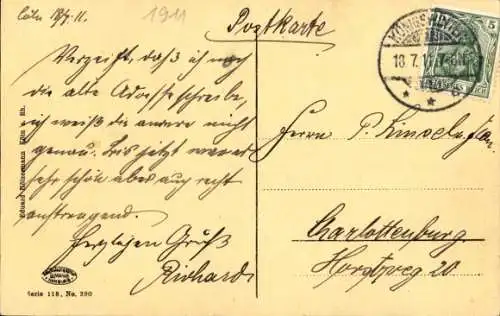 Cöln 18/7. 11.
1911
Postkarte
Verzeiht, daß ich noch
die alte Adresse schreibe,
ich weiß die andere nicht
genau. Bis jetzt war es
sehr schön aber auch recht
anstrengend.
Herzlichen Gruß
Richard
KÖNIGSWINTER
18.7.11
5
Herrn P.
Charlottenburg
20
Eduard Cöln a. Rh.
Serie 118, No. 390